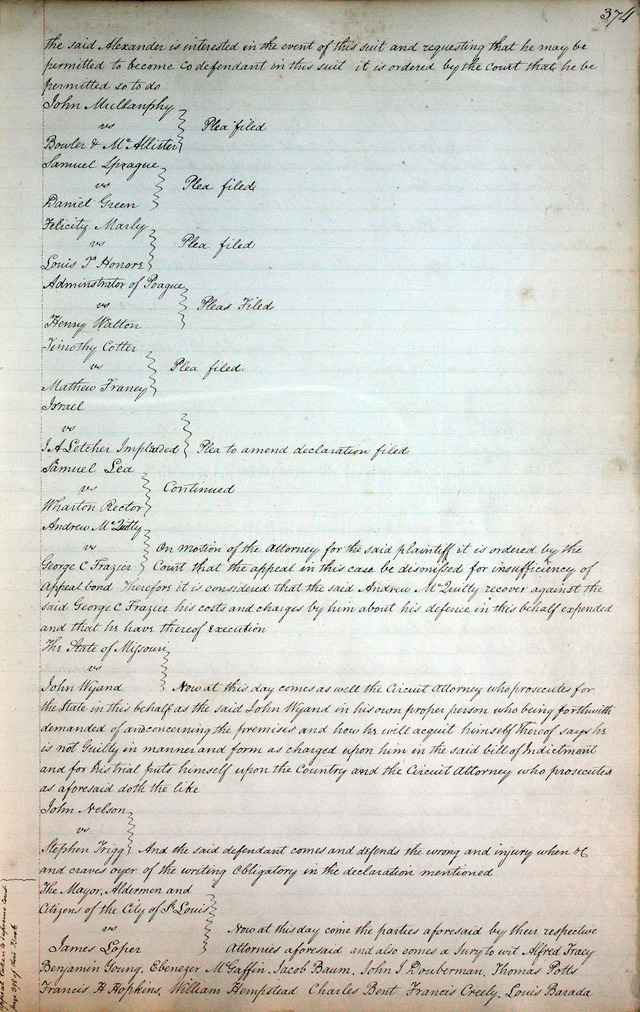 374
the said Alexander is interested in the event of this suit and requesting that he may be
permitted to become co defendant in this suit it is ordered by the Court that he be
permitted so to do
John Mullanphy
vs
Plea filed
Bowler & McAllister
Samuel Sprague
vs
Plea filed
Daniel Green
Felicity Marly
vs
Plea filed
Louis T Honore
Adminstrator of Poague
vs
Pleas Filed
Henry Walton
Timothy Cotter
vs
Plea filed
Mathew Franey
Israel
vs
J A Letcher Impleaded Plea to amend declaration filed
Samuel Lea
vs
Continued
Wharton Rector
Andrew McQuitty
vs On motion of the Attorney for the said plaintiff it is ordered by the
George C Frazier Court that the appeal in this case be dismissed for insufficiency of
Appeal bond Therefore it is considered that the said Andrew McQuitty recover against the
said George C Frazier his costs and charges by him about his defence in this behalf expended
and that he have thereof Execution
The State of Missouri
vs
John Wyand Now at this day comes as well the Circuit Attorney who prosecutes for
the State in this behalf as the said John Wyand in his own proper person who being forthwith
demanded of and concerning the premises and how he will acquit himself thereof says he
is not Guilty in manner and form as charged upon him in the said bill of Indictment
and for his trial puts himself upon the Country and the Circuit Attorney who prosecutes
as aforesaid doth the like
John Nelson
vs
Stephen Trigg And the said defendant comes and defends the wrong and injury when &c
and craves oyer of the writing Obligatory in the declaration mentioned
The Mayor, Aldermen and
Citizens of the City of St Louis
vs Now at this day come the parties aforesaid by their respective
James Loper Attornies aforesaid and also comes a Jury to wit Alfred Tracy
Benjamin Young, Ebenezer McGaffin, Jacob Baum, John J Douberman, Thomas Potts
Francis H Hopkins, William Hempstead Charles Bent Francis Creely, Louis Barada
appeal taken to Supreme Court
page 396 of this Book